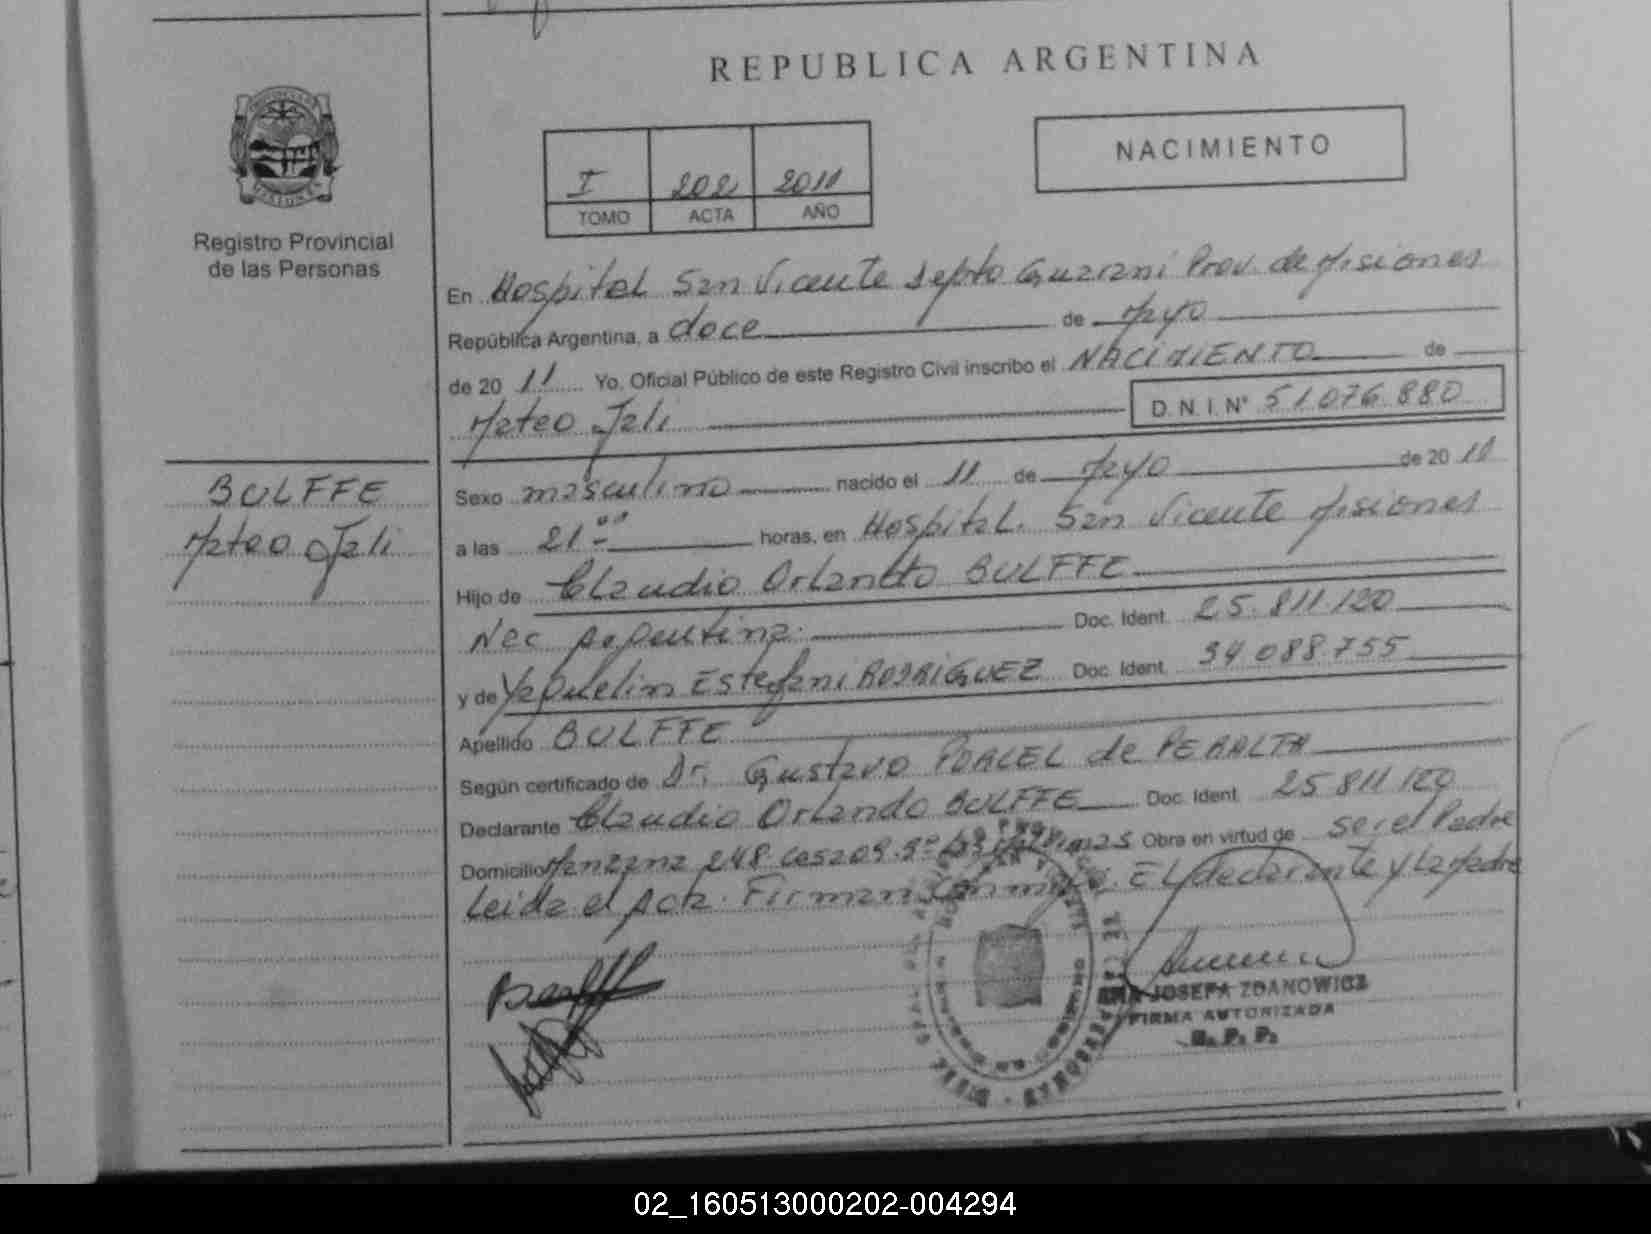 REPUBLICA ARGENTINA
NACIMIENTO
I 202 2011
TOMO ACTA AÑO
Registro Provincial
de las Personas
En Hospital San Vicente Depto Guarani Prov. de Misiones
República Argentina, a doce de Mayo
de 20 11 Yo, Oficial Público de este Registro Civil inscribo el NACIMIENTO de
Mateo Jali D.N.I. N° 51.076.880
BULFFE
Mateo Jali
Sexo masculino nacido el 11 de Mayo de 20 11
a las 21 horas, en Hospital San Vicente Misiones
Hijo de Claudio Orlando BULFFE
Nac Argentina Doc. Ident. 25.811.120
y de Yaquelin Estefani RODRIGUEZ Doc. Ident. 34.088.755
Apellido BULFFE
Según certificado de Dr. Gustavo PORCEL de PERALTA
Declarante Claudio Orlando BULFFE Doc. Ident. 25.811.120
Domicilio Manzana 248 Casa 209 Obra en virtud de ser el Padre
Leida el Acta. Firman El declarante y La Madre
ANA JOSEFA ZDANOWICZ
FIRMA AUTORIZADA
R. P. P.
02_160513000202-004294